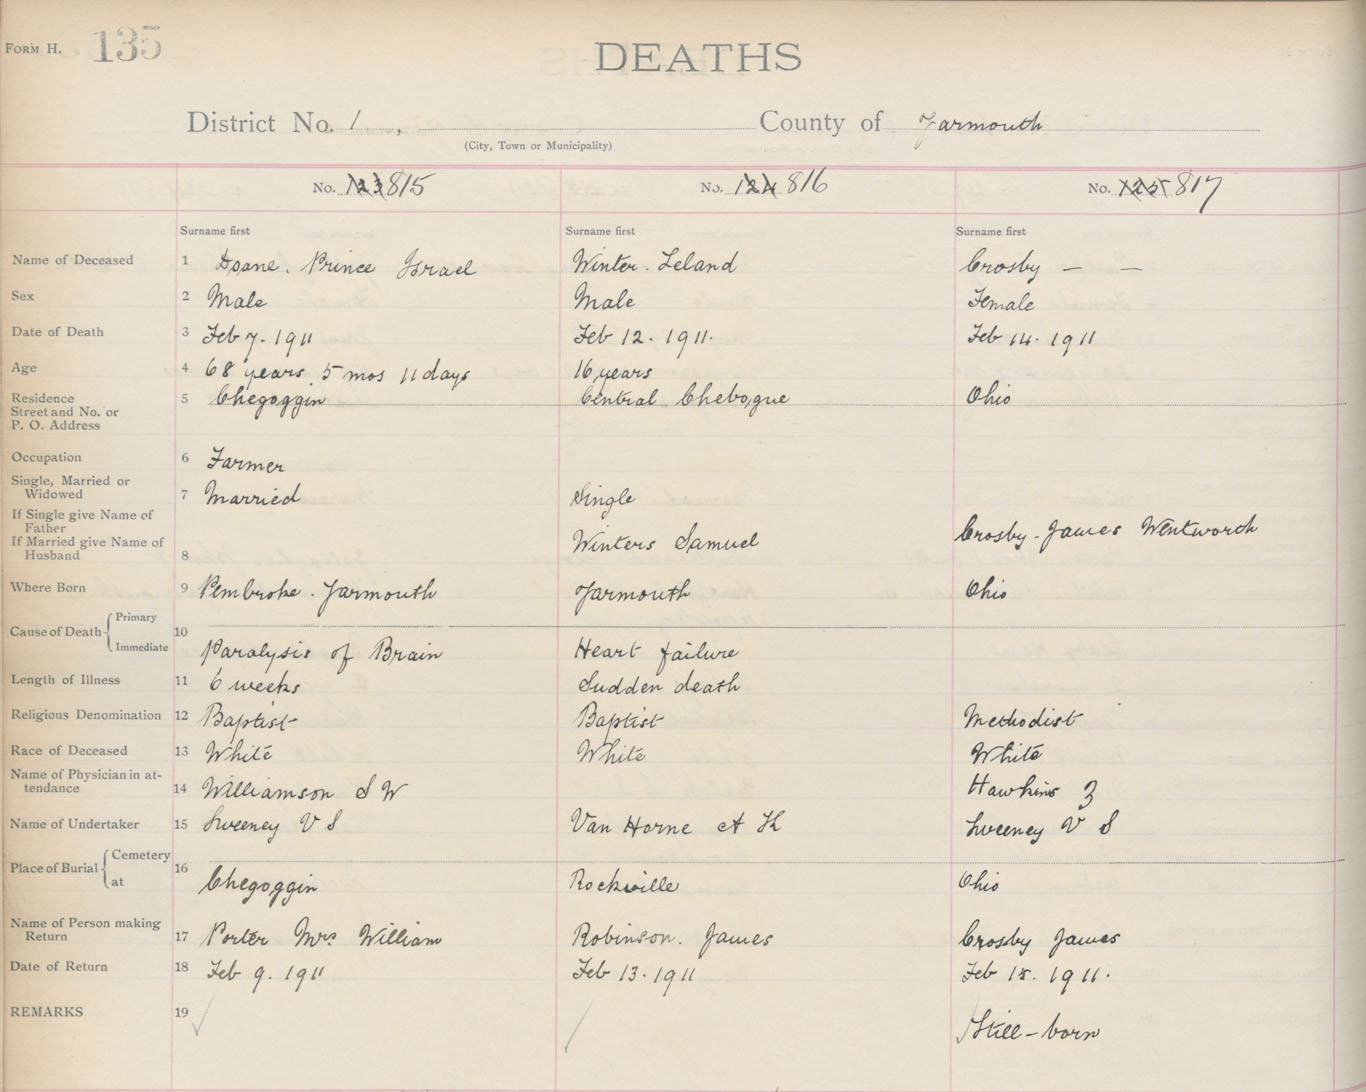 FORM H. 135
DEATHS
District No. 1 , County of Yarmouth
(City, Town or Municipality)
No. 123 815 No. 124 816 No. 125 817
Surname first Surname first Surname first
Name of Deceased 1 Doane. Prince Israel Winter. Leland Crosby — —
Sex 2 Male Male Female
Date of Death 3 Feb 7. 1911 Feb 12. 1911. Feb 14. 1911
Age 4 68 years. 5 mos 11 days 16 years
Residence 5 Chegoggin Central Chebogue Ohio
Street and No. or
P. O. Address
Occupation 6 Farmer
Single, Married or
Widowed 7 Married Single
If Single give Name of
Father Crosby. James Wentworth
If Married give Name of Winters Samuel
Husband 8
Where Born 9 Pembroke. Yarmouth Yarmouth Ohio
Primary
Cause of Death 10
Immediate Paralysis of Brain Heart failure
Length of Illness 11 6 weeks Sudden death
Religious Denomination 12 Baptist Baptist Methodist
Race of Deceased 13 White White White
Name of Physician in at-
tendance 14 Williamson S W Hawkins Z
Name of Undertaker 15 Sweeney V S Van Horne A K Sweeney V S
Cemetery
Place of Burial 16
at Chegoggin Rockville Ohio
Name of Person making
Return 17 Porter Mrs William Robinson. James Crosby James
Date of Return 18 Feb 9. 1911 Feb 13. 1911 Feb 15. 1911.
REMARKS 19
Still-born